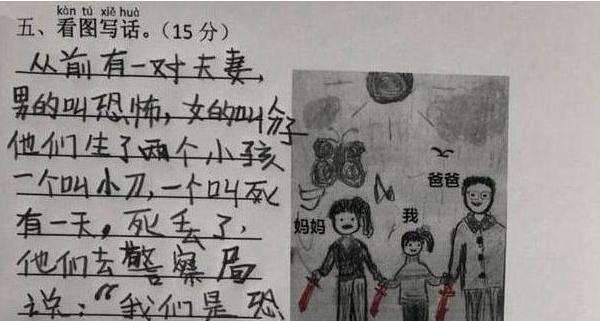 kàn tú xiě huà
五、看图写话。（15 分）
从前有一对夫妻，
男的叫恐怖，女的叫分子
他们生了两个小孩
一个叫小刀，一个叫死
有一天，死丢了，
他们去警察局
说：“我们是恐
妈妈
我
爸爸